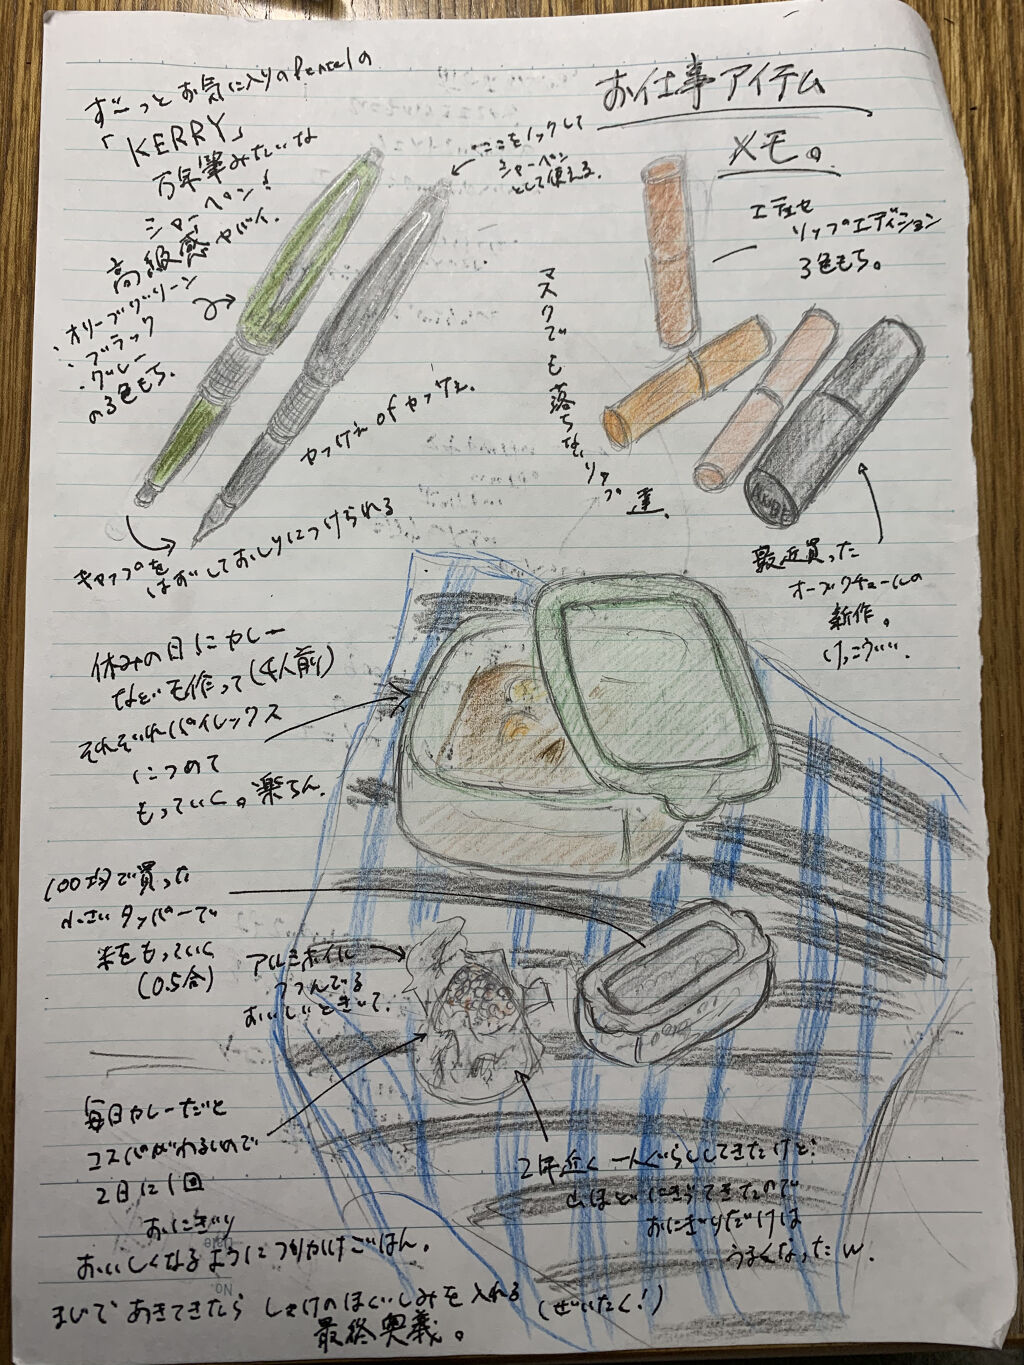 お仕事アイテム
メモ。
ず〜っとお気に入りのPentelの
「KERRY」
万年筆みたいな
シャーペン!
高級感ヤバイ。
・オリーブグリーン
・ブラック
・グレー
の3色もち。
ここをノックして
シャーペン
として使える。
カッけえ of カッけえ。
キャップを
はずしておしりにつけられる
エテュセ
リップエディション
3色もち。
マスクでも落ちないリップ達。
最近買った
オーブクチュールの
新作。
けっこういい。
AUBE
休みの日にカレー
などを作って(4人前)
それぞれパイレックス
につめて
もっていく。楽ちん。
100均で買った
小さいタッパーで
米をもっていく
(0.5合)
アルミホイル
つつんでる
おいしいときいて。
毎日カレーだと
コスパがわるいので
2日に1回
おにぎり
おいしくなるように つかかけごはん。
2年近く一人ぐらししてきたけど
山ほどにぎってきたので
おにぎりだけは
うまくなったw.
まじで あきてきたら しゃけのほぐしみを入れる (ぜいたく!)
最終奥義。
Date
No